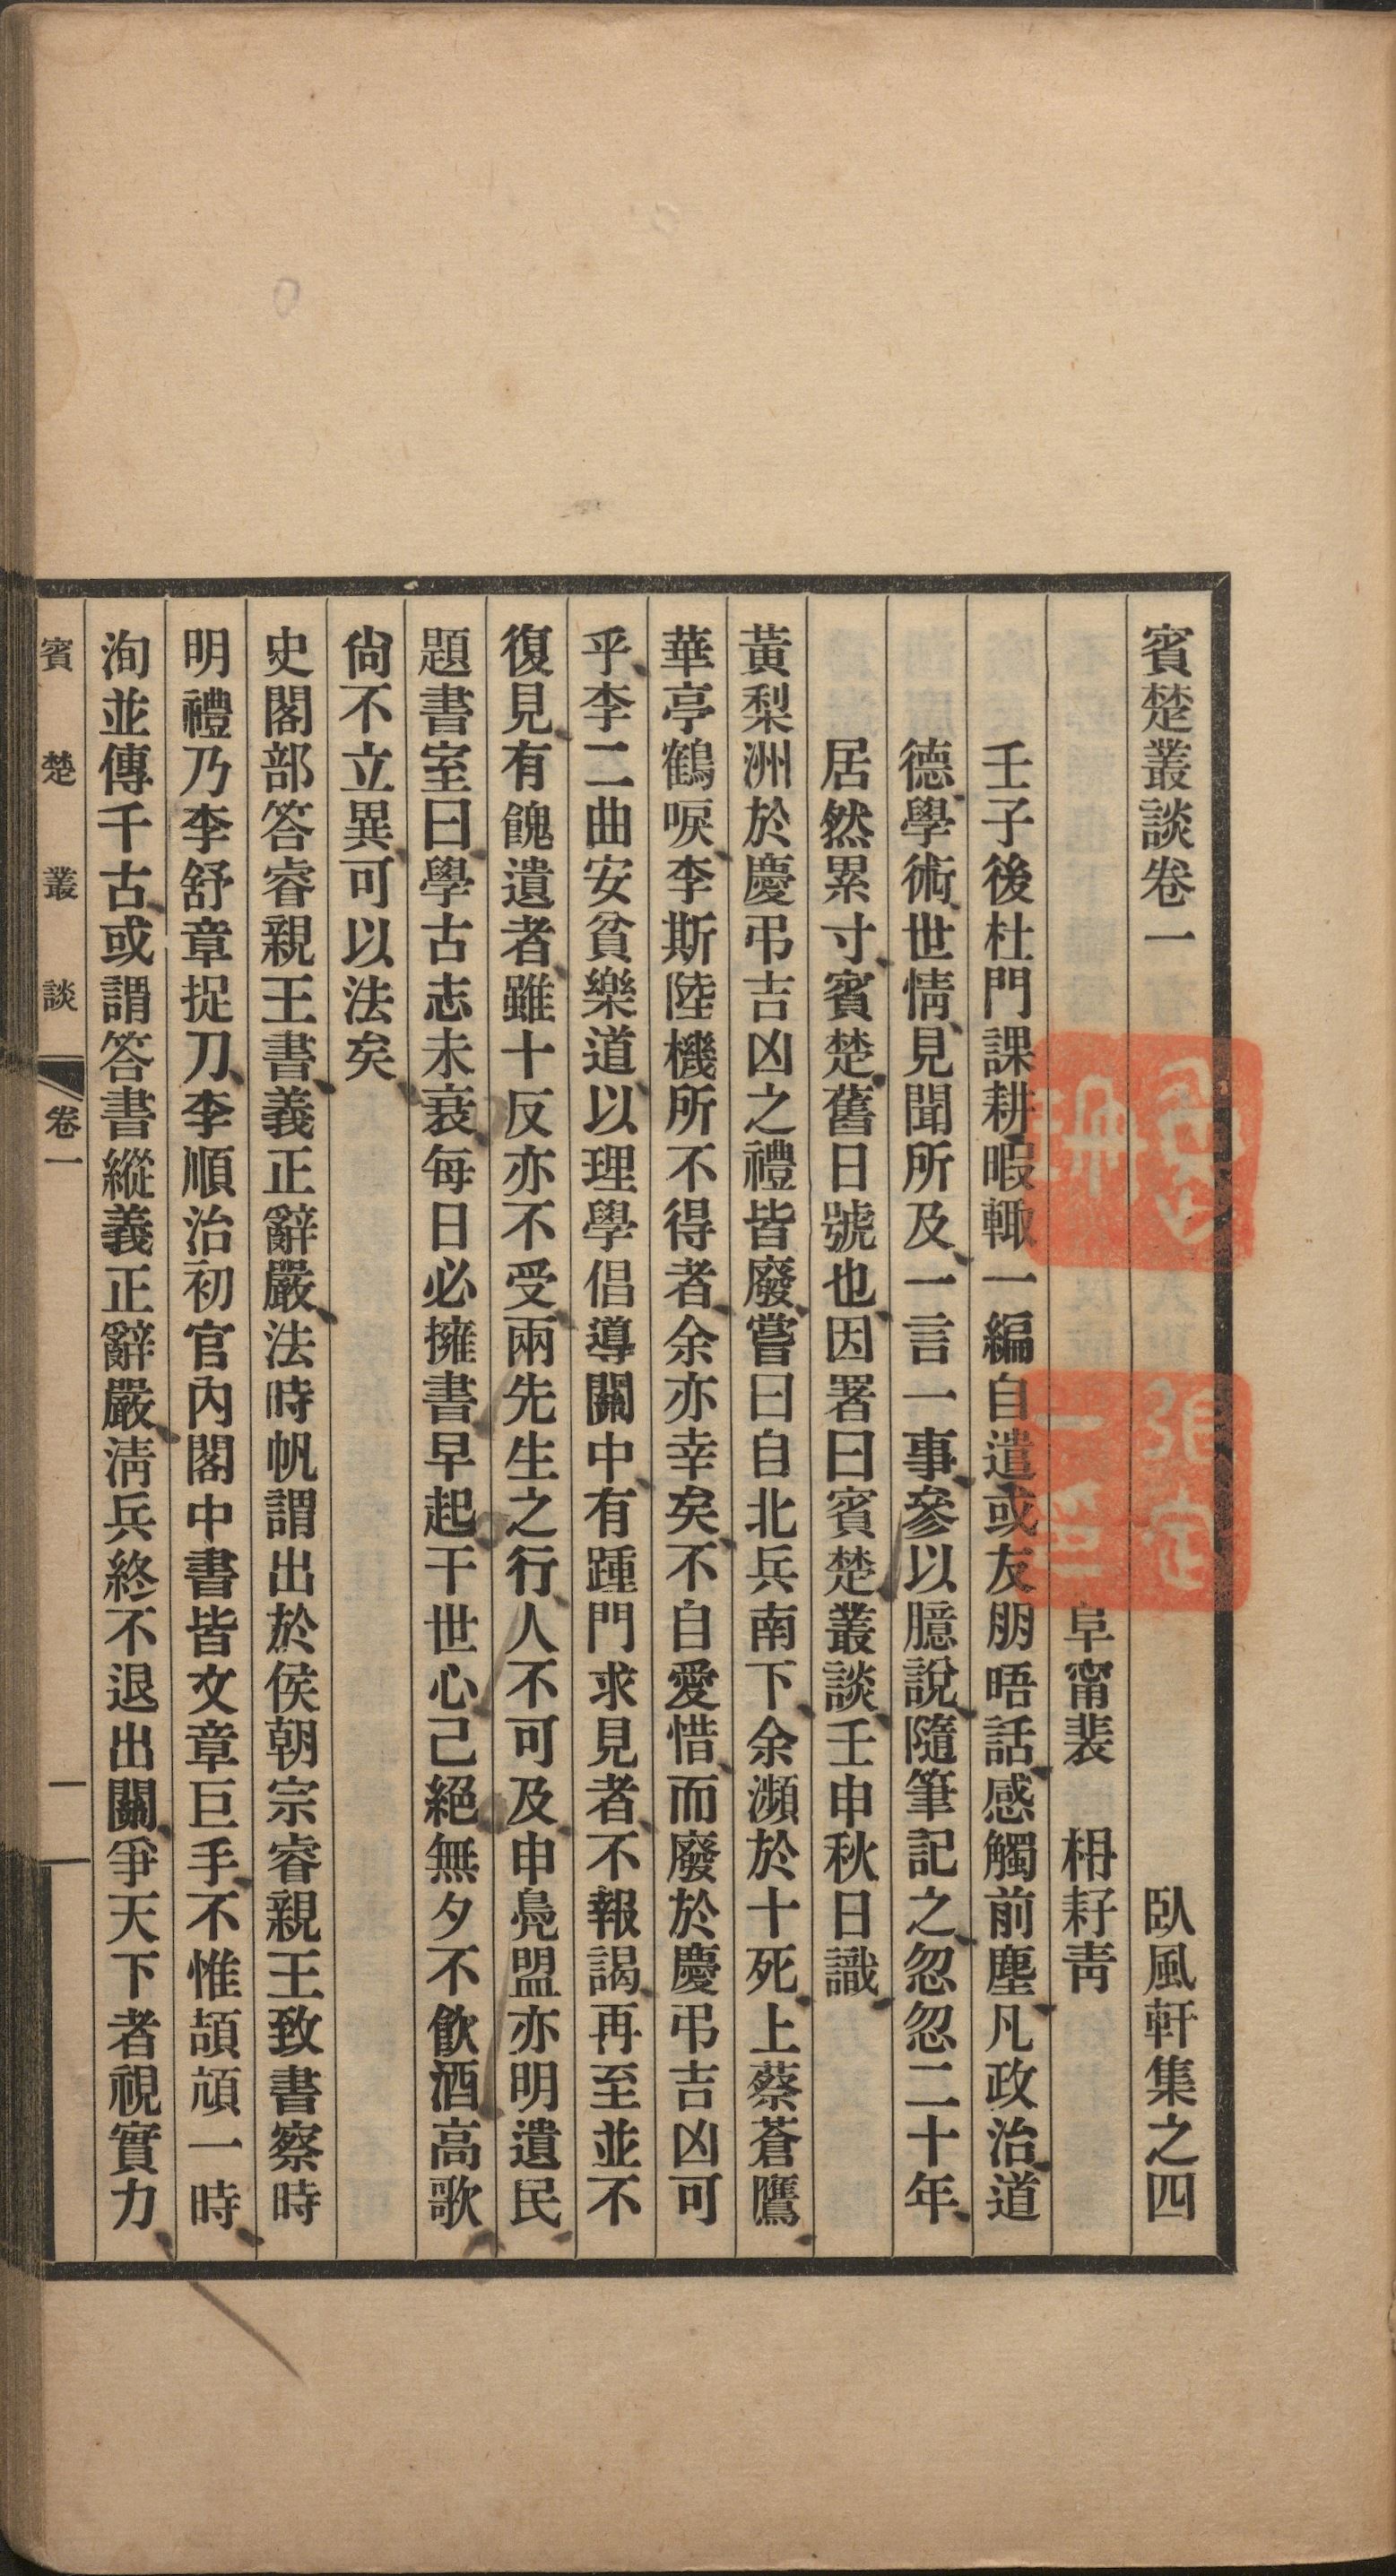 賓楚叢談卷一 臥風軒集之四
阜甯裴 枬籽青
壬子後杜門課耕暇輙一編自遣或友朋晤話感觸前塵凡政治道
德學術世情見聞所及一言一事參以臆說隨筆記之忽忽二十年
居然累寸賓楚舊日號也因署曰賓楚叢談壬申秋日識
黃梨洲於慶弔吉凶之禮皆廢嘗曰自北兵南下余瀕於十死上蔡蒼鷹
華亭鶴唳李斯陸機所不得者余亦幸矣不自愛惜而廢於慶弔吉凶可
乎李二曲安貧樂道以理學倡導關中有踵門求見者不報謁再至並不
復見有餽遺者雖十反亦不受兩先生之行人不可及申鳧盟亦明遺民
題書室曰學古志未衰每日必擁書早起干世心己絕無夕不飲酒高歌
尙不立異可以法矣
史閣部答睿親王書義正辭嚴法時帆謂出於侯朝宗睿親王致書察時
明禮乃李舒章捉刀李順治初官內閣中書皆文章巨手不惟頡頏一時
洵並傳千古或謂答書縱義正辭嚴淸兵終不退出關爭天下者視實力
賓楚叢談 卷一 一